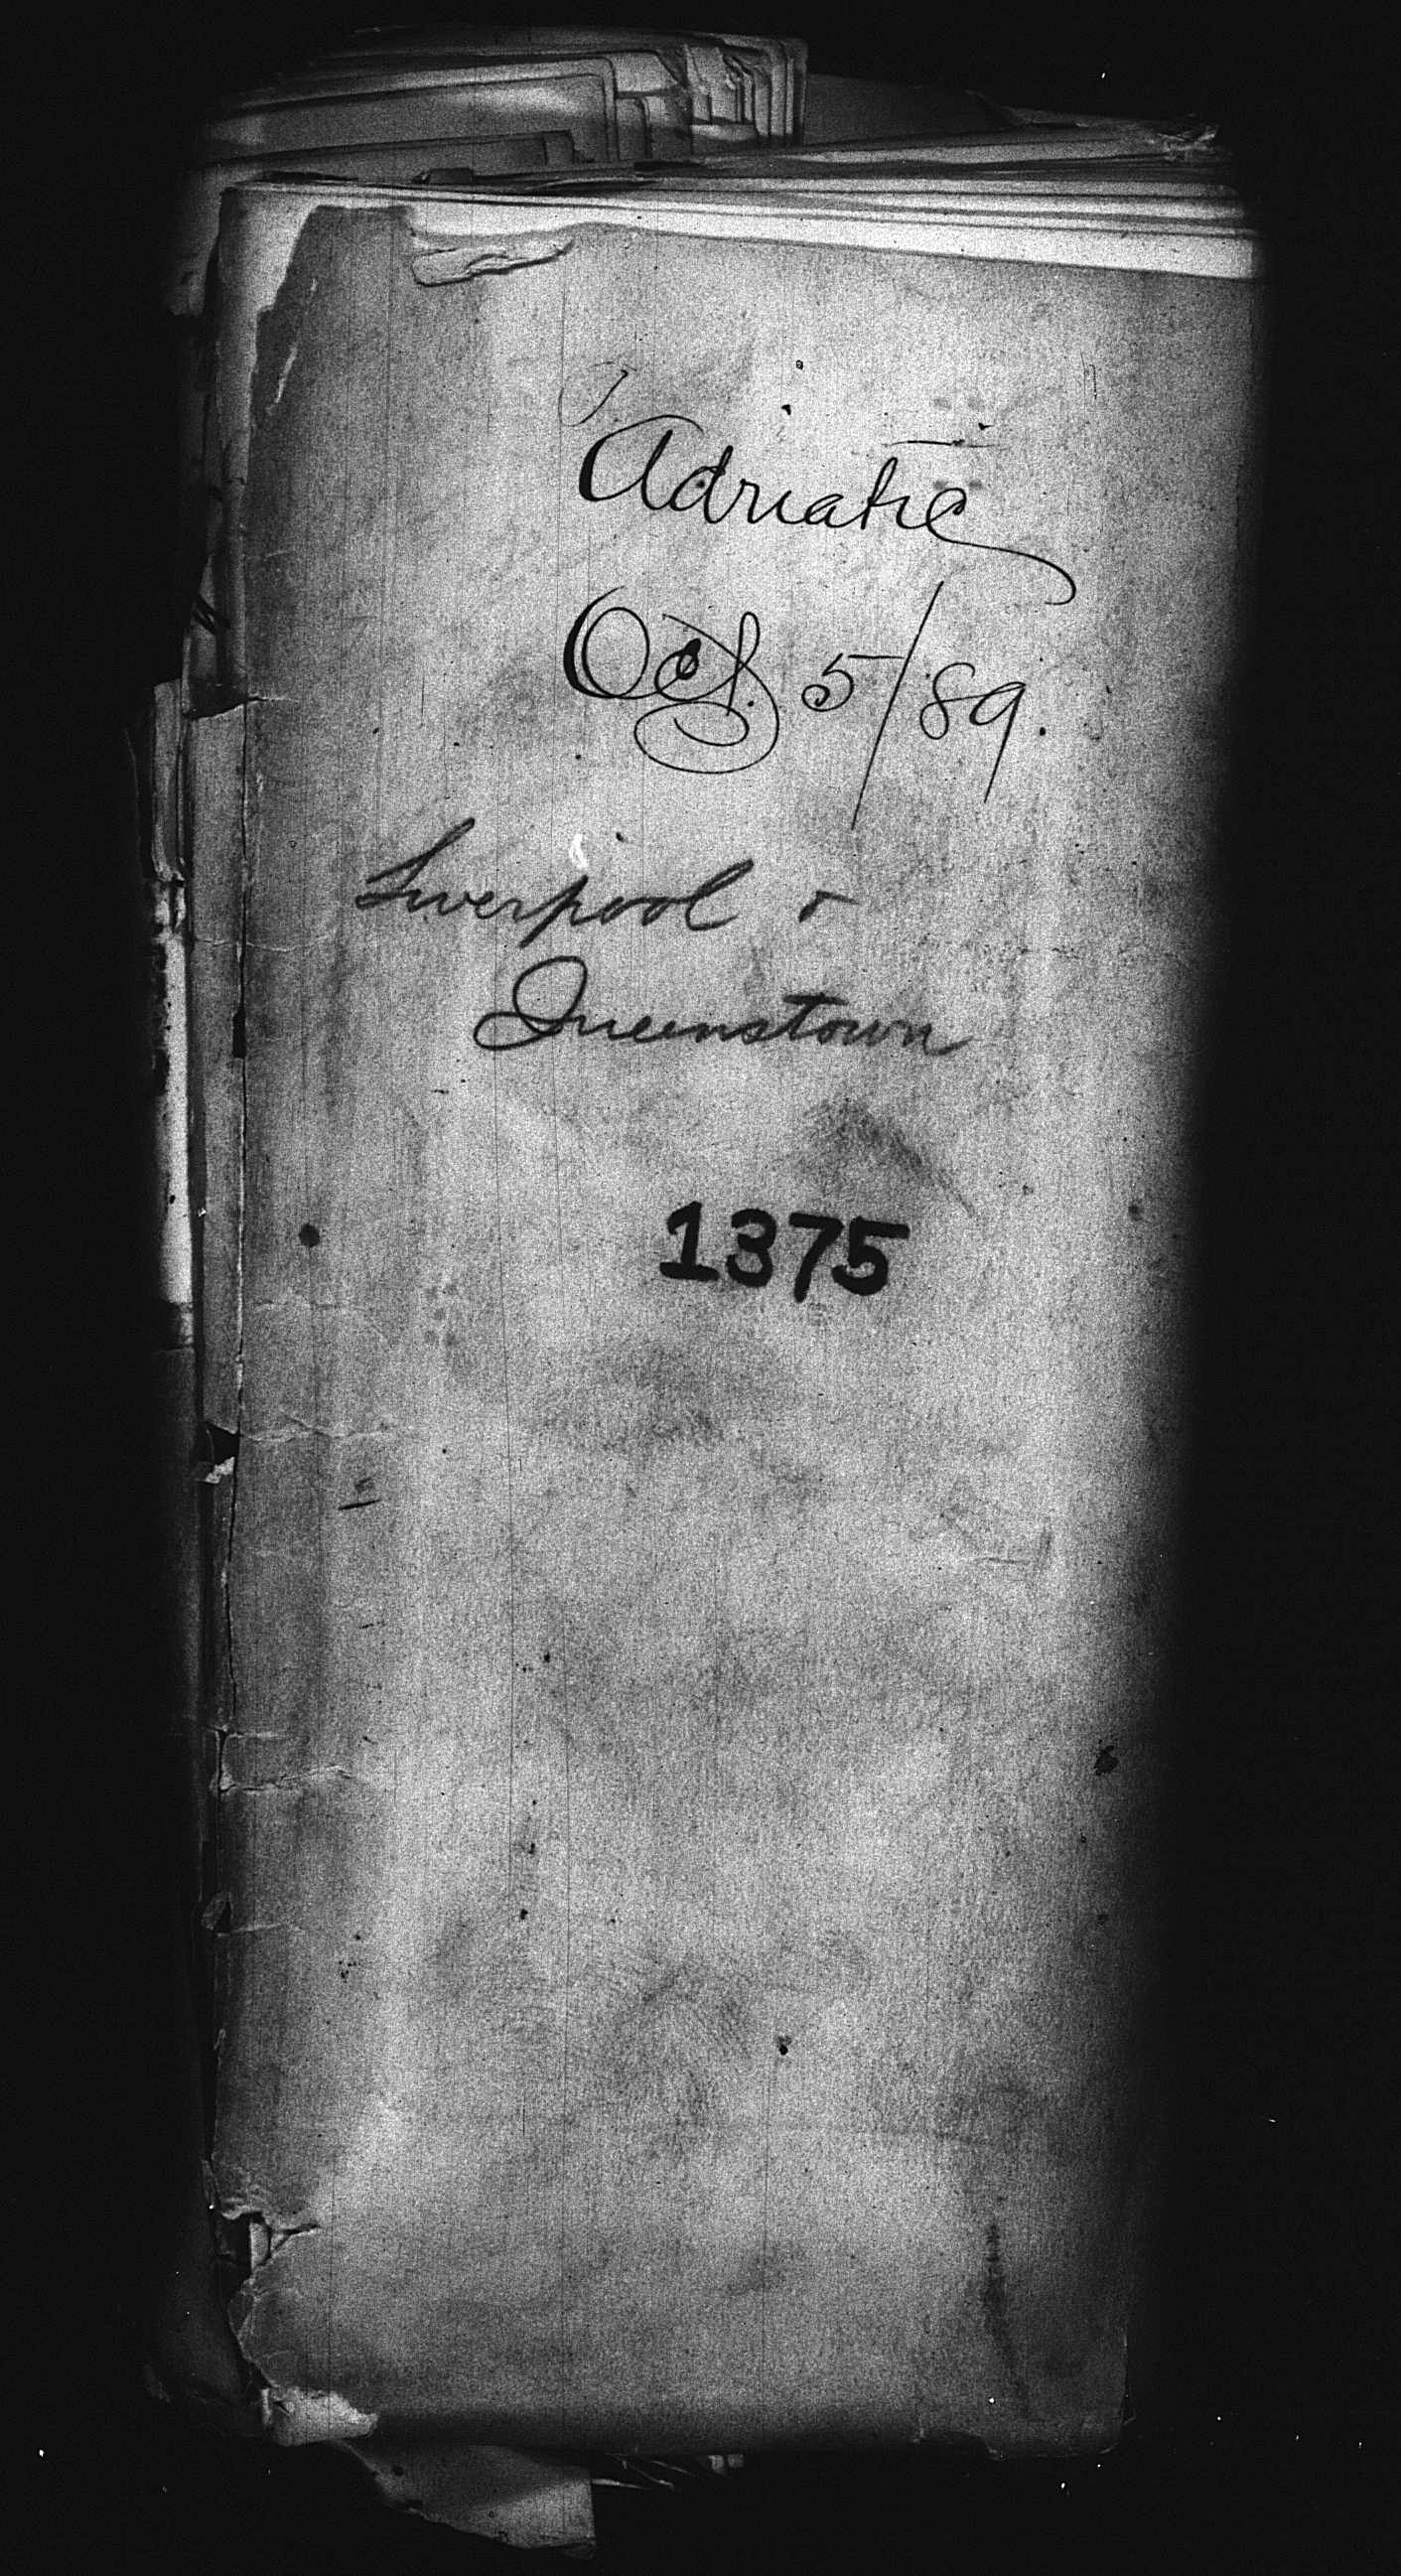 Adriatic
Oct. 5/89.
Liverpool &
Queenstown
1375